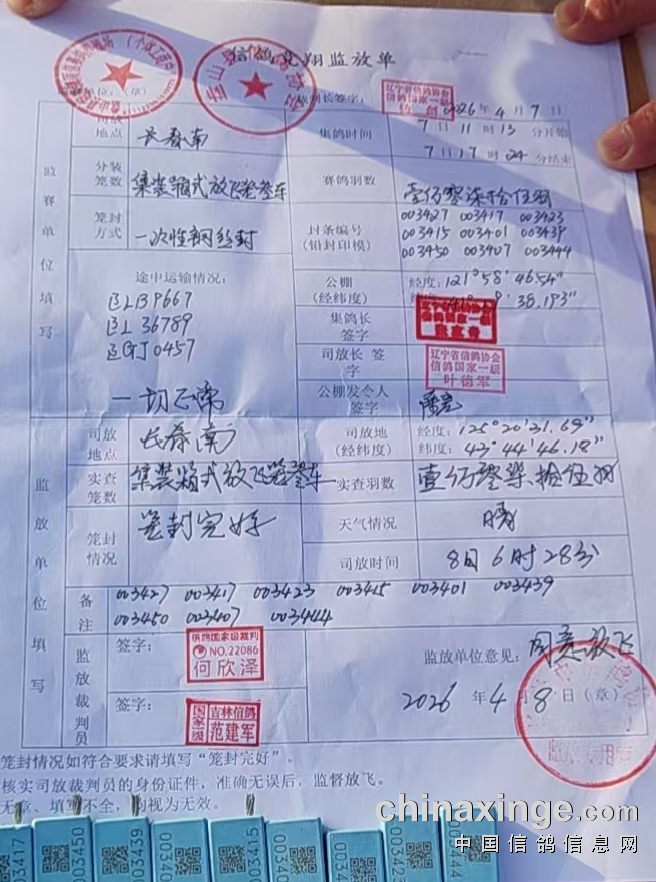 信鸽竞翔监放单
2026年4月7日
司放地点 长春南 集鸽时间 7日11时13分开始
7日17时24分结束
分装笼数 集装箱式放飞笼整车 赛鸽羽数 壹仟零柒拾伍羽
笼封方式 一次性钢丝封 封条编号(铅封印模) 003427 003417 003423
003415 003401 003439
003450 003407 003444
途中运输情况: 公棚(经纬度) 经度:121°58'46.54"
38.193"
BLBP667
BL36789
EGJ0457
一切正常
集鸽长签字
司放长签字 辽宁省信鸽协会 信鸽国家一级 叶德军
公棚发令人签字
监赛单位填写
司放地点 长春南 司放地(经纬度) 经度:125°20'31.69"
纬度:43°44'46.18"
实查笼数 集装箱式放飞笼整车 实查羽数 壹仟零柒拾伍羽
笼封情况 笼封完好 天气情况 晴
司放时间 8日6时28分
备注 003427 003417 003423 003415 003401 003439
003450 003407 003444
监放单位填写
监放裁判员 签字: 信鸽国家级裁判 NO.22086 何欣泽
签字: 吉林信鸽 国家一级 范建军
监放单位意见: 同意放飞
2026年4月8日(章)
笼封情况如符合要求请填写"笼封完好"。
核实司放裁判员的身份证件,准确无误后,监督放飞。
填写不全,均视为无效。
003417 003450 003439 003415
chinaxinge.com
中国信鸽信息网